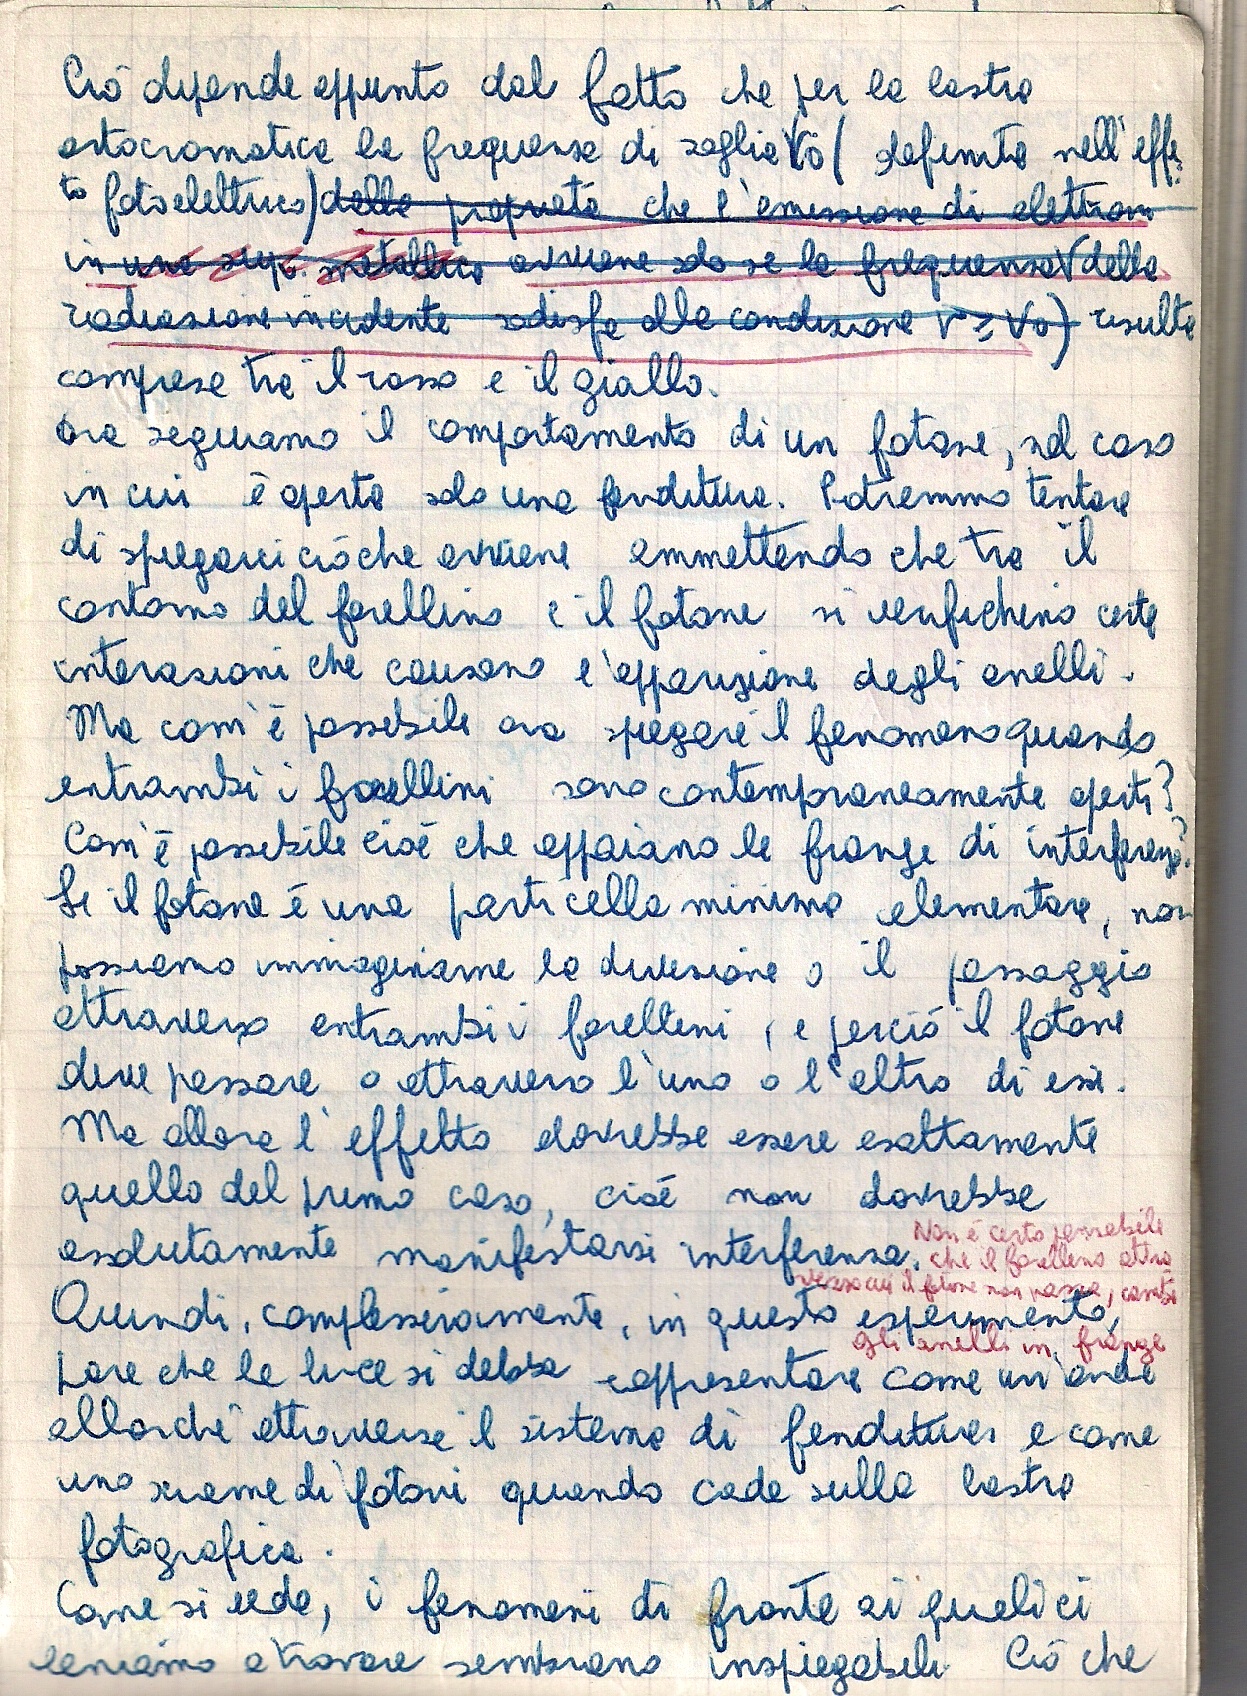 Ciò dipende appunto dal fatto che per la lastra
ortocromatica la frequenza di soglia ν0 ( definita nell'effet
to fotoelettrico) dalla proprietà che l'emissione di elettroni
in una sup. metallica avviene solo se la frequenza ν della
radiazione incidente sodisfa alla condizione ν ≥ ν0) risulta
compresa tra il rosso e il giallo.
Ora seguiamo il comportamento di un fotone, nel caso
in cui è aperta solo una fenditura. Potremmo tentare
di spiegarci ciò che avviene ammettendo che tra il
contorno del forellino e il fotone si verifichino certe
interazioni che causano l'apparizione degli anelli.
Ma com'è possibile ora spiegare il fenomeno quando
entrambi i forellini sono contemporaneamente aperti?
Com'è possibile cioè che appaiano le frange di interferenza?
Se il fotone è una particella minima elementare, non
possiamo immaginarne la divisione o il passaggio
attraverso entrambi i forellini, e perciò il fotone
deve passare o attraverso l'uno o l'altro di essi.
Ma allora l'effetto dovrebbe essere esattamente
quello del primo caso, cioè non dovrebbe
assolutamente manifestarsi interferenza.
Non è certo pensabile
che il forellino attra
verso cui il fotone non passa, cambi
gli anelli in frange
Quindi, complessivamente, in questo esperimento,
pare che la luce si debba rappresentare come un'onda
allorchè attraversa il sistema di fenditure e come
uno sciame di fotoni quando cade sulla lastra
fotografica.
Come si vede, i fenomeni di fronte ai quali ci
veniamo a trovare sembrano inspiegabili. Ciò che